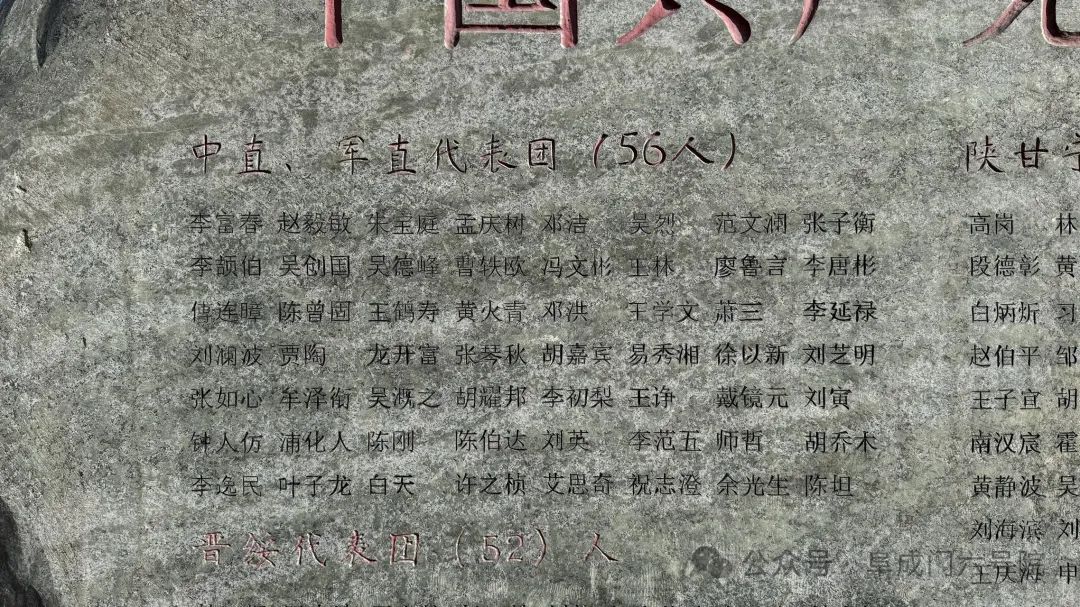 中国共产党
中直、军直代表团（56人）
李富春 赵毅敏 朱宝庭 孟庆树 邓洁 吴烈 范文澜 张子衡
李颉伯 吴创国 吴德峰 曹轶欧 冯文彬 王林 廖鲁言 李唐彬
傅连暲 陈曾固 王鹤寿 黄火青 邓洪 王学文 萧三 李延禄
刘澜波 贾陶 龙开富 张琴秋 胡嘉宾 易秀湘 徐以新 刘芝明
张如心 牟泽衔 吴溉之 胡耀邦 李初梨 王诤 戴镜元 刘寅
钟人仿 浦化人 陈刚 陈伯达 刘英 李范五 师哲 胡乔木
李逸民 叶子龙 白天 许之桢 艾思奇 祝志澄 余光生 陈坦
晋绥代表团（52）人
陕甘宁
高岗 林
段德彰 黄
白炳炘 习
赵伯平 邹
王子宜 胡
南汉宸 霍
黄静波 吴
刘海滨 刘
王庆海 申
公众号·阜成门六号院